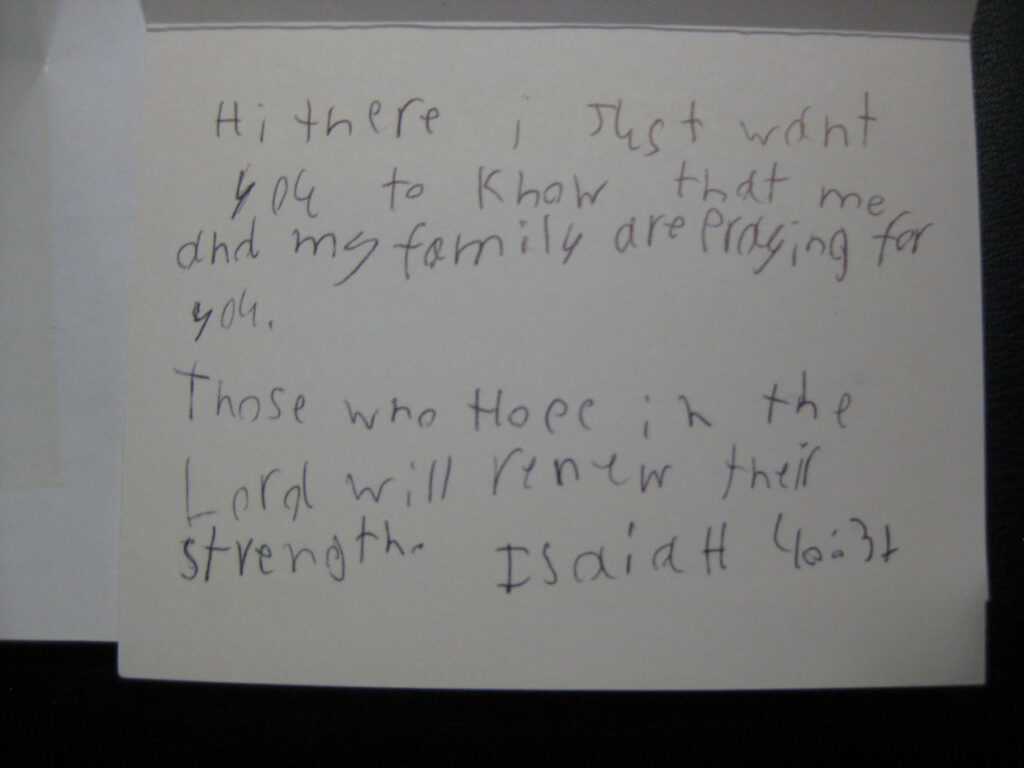 Hi there i Just want
you to Know that me
and my family are Praying for
you.
Those who Hope in the
Lord will renew their
strength. IsaiaH 40:31